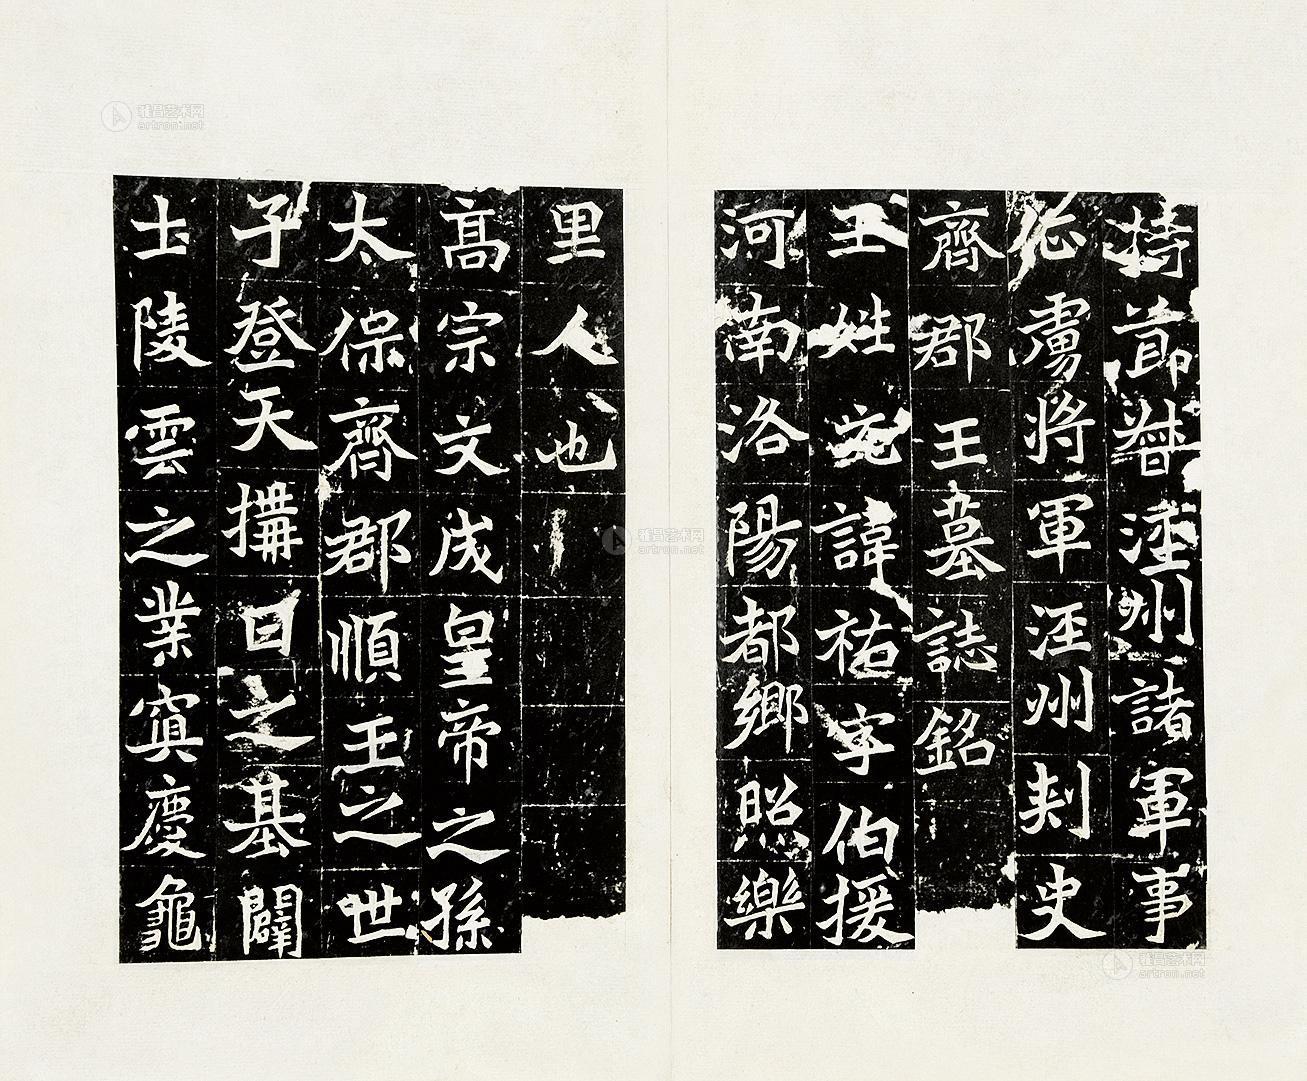 持節督涇州諸軍事
征虜將軍涇州刺史
齊郡王墓誌銘
王姓元諱祐字伯援
河南洛陽都鄉照樂
里人也
高宗文成皇帝之孫
太保齊郡順王之世
子登天構日之基闢
士陵雲之業寘慶龜
雅昌艺术网
artron.net
雅昌艺术网
artron.net
雅昌艺术网
artron.net